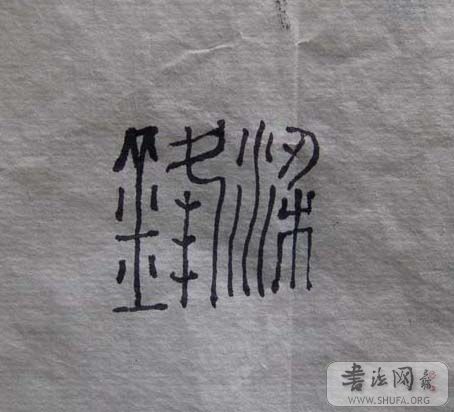 梁鋒
書法网
WWW.SHUFA.ORG